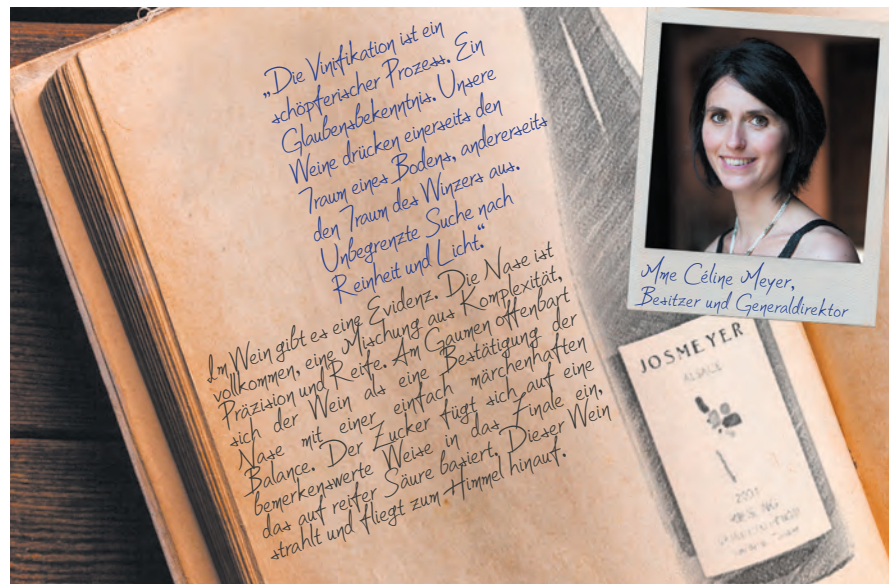 „Die Vinifikation ist ein
schöpferischer Prozess. Ein
Glaubensbekenntnis. Unsere
Weine drücken einerseits den
Traum eines Bodens, andererseits
den Traum des Winzers aus.
Unbegrenzte Suche nach
Reinheit und Licht.“
Im Wein gibt es eine Evidenz. Die Nase ist
vollkommen, eine Mischung aus Komplexität,
Präzision und Reife. Am Gaumen offenbart
sich der Wein als eine Bestätigung der
Nase mit einer einfach märchenhaften
Balance. Der Zucker fügt sich auf eine
bemerkenswerte Weise in das Finale ein,
das auf reifer Säure basiert. Dieser Wein
strahlt und fliegt zum Himmel hinauf.
Mme Céline Meyer,
Besitzer und Generaldirektor
JOSMEYER
ALSACE